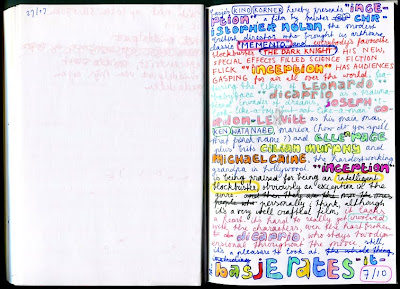 27/07
Basje's KINO KORNER hereby presents "INCE
PTION" a film by mister CHR
ISTOPHER NOLAN, the modern
british director who brought us arthouse
classic "MEMENTO" and everybody's favourite
blockbuster "THE DARK KNIGHT". HIS NEW,
SPECIAL EFFECTS FILLED SCIENCE FICTION
FLICK "INCEPTION" HAS AUDIENCES
GASPING for air all over the world.
the likes of Leonardo
dicaprio as a
invader of dreams,
JOSEPH
DON-LEVITT as his main man,
KEN WATANABE, marion (how do you spell
that french name?) and ELLEN PAGE
plus brits CILIAN MURPHY and
MICHAEL CAINE, the hardest working
grandpa in hollywood. "INCEPTION"
is being praised for being an intelligent
blockbuster, obviously an exception in the
genre.
personally i think, although
it's a very well crafted film, it lacks
a heart. it's hard to really get involved
with the characters, even the heartbroken
dicaprio, who stays two dim
ensional throughout the movie. still,
it's a pleasure to look at.
basJE RATES -it-
7/10